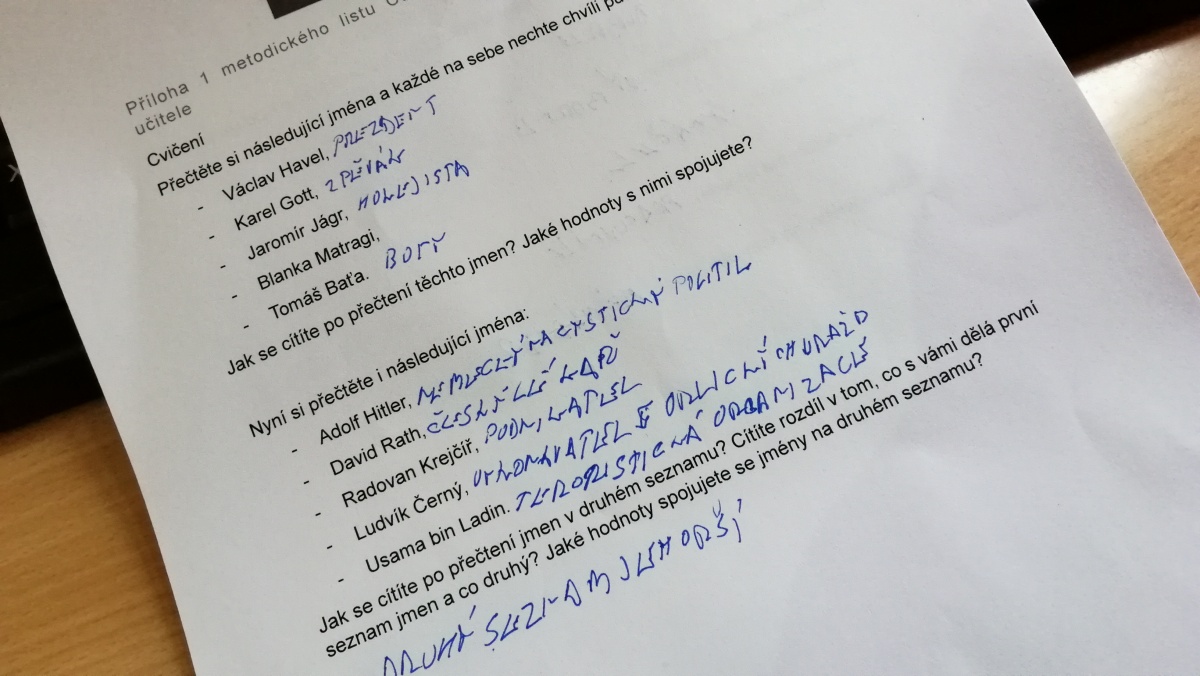 Příloha 1 metodického listu
učitele
Cvičení
Přečtěte si následující jména a každé na sebe nechte chvíli
- Václav Havel, PREZIDENT
- Karel Gott, ZPĚVÁK
- Jaromír Jágr, HOKEJISTA
- Blanka Matragi,
- Tomáš Baťa. BOTY
Jak se cítíte po přečtení těchto jmen? Jaké hodnoty s nimi spojujete?
Nyní si přečtěte i následující jména:
- Adolf Hitler, NĚMECKÝ NACISTICKÝ POLITIK
- David Rath, ČESKÝ LÉKAŘ
- Radovan Krejčíř, PODNIKATEL
- Ludvík Černý, VYKONAVATEL ORLICKÝCH VRAŽD
- Usama bin Ladin. TERORISTICKÁ ORGANIZACE
Jak se cítíte po přečtení jmen v druhém seznamu? Cítíte rozdíl v tom, co s vámi dělá první
seznam jmen a co druhý? Jaké hodnoty spojujete se jmény na druhém seznamu?
DRUHÝ SEZNAM JE HORŠÍ